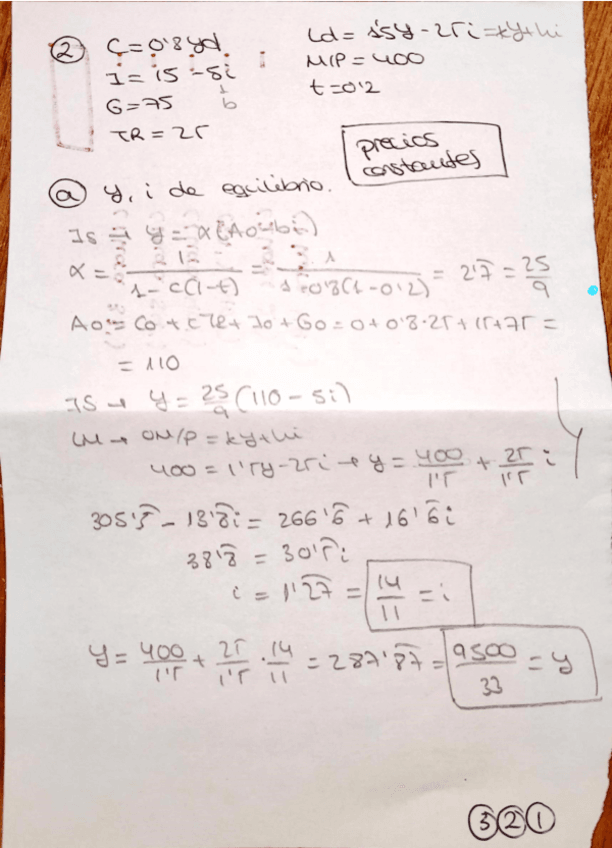 ② C = 0'8 yd
I = 15 - 5i
b
G = 75
TR = 25
Ld = 1'5y - 25i = ky + hi
M/P = 400
t = 0'2
precios constantes
ⓐ y, i de equilibrio.
IS → y = α(A0 - bi)
α = 1/(1 - c(1-t)) = 1/(1 - 0'8(1 - 0'2)) = 2'7̂ = 25/9
A0 = C0 + cTR + I0 + G0 = 0 + 0'8·25 + 15 + 75 =
= 110
IS → y = 25/9 (110 - 5i)
LM → OM/P = ky + hi
400 = 1'5y - 25i → y = 400/1'5 + 25/1'5 i
305'5̂ - 13'8̂i = 266'6̂ + 16'6̂i
38'8̂ = 30'5̂i
i = 1'27̂ = 14/11 = i
y = 400/1'5 + 25/1'5 · 14/11 = 287'87̂ = 9500/33 = y
③②①